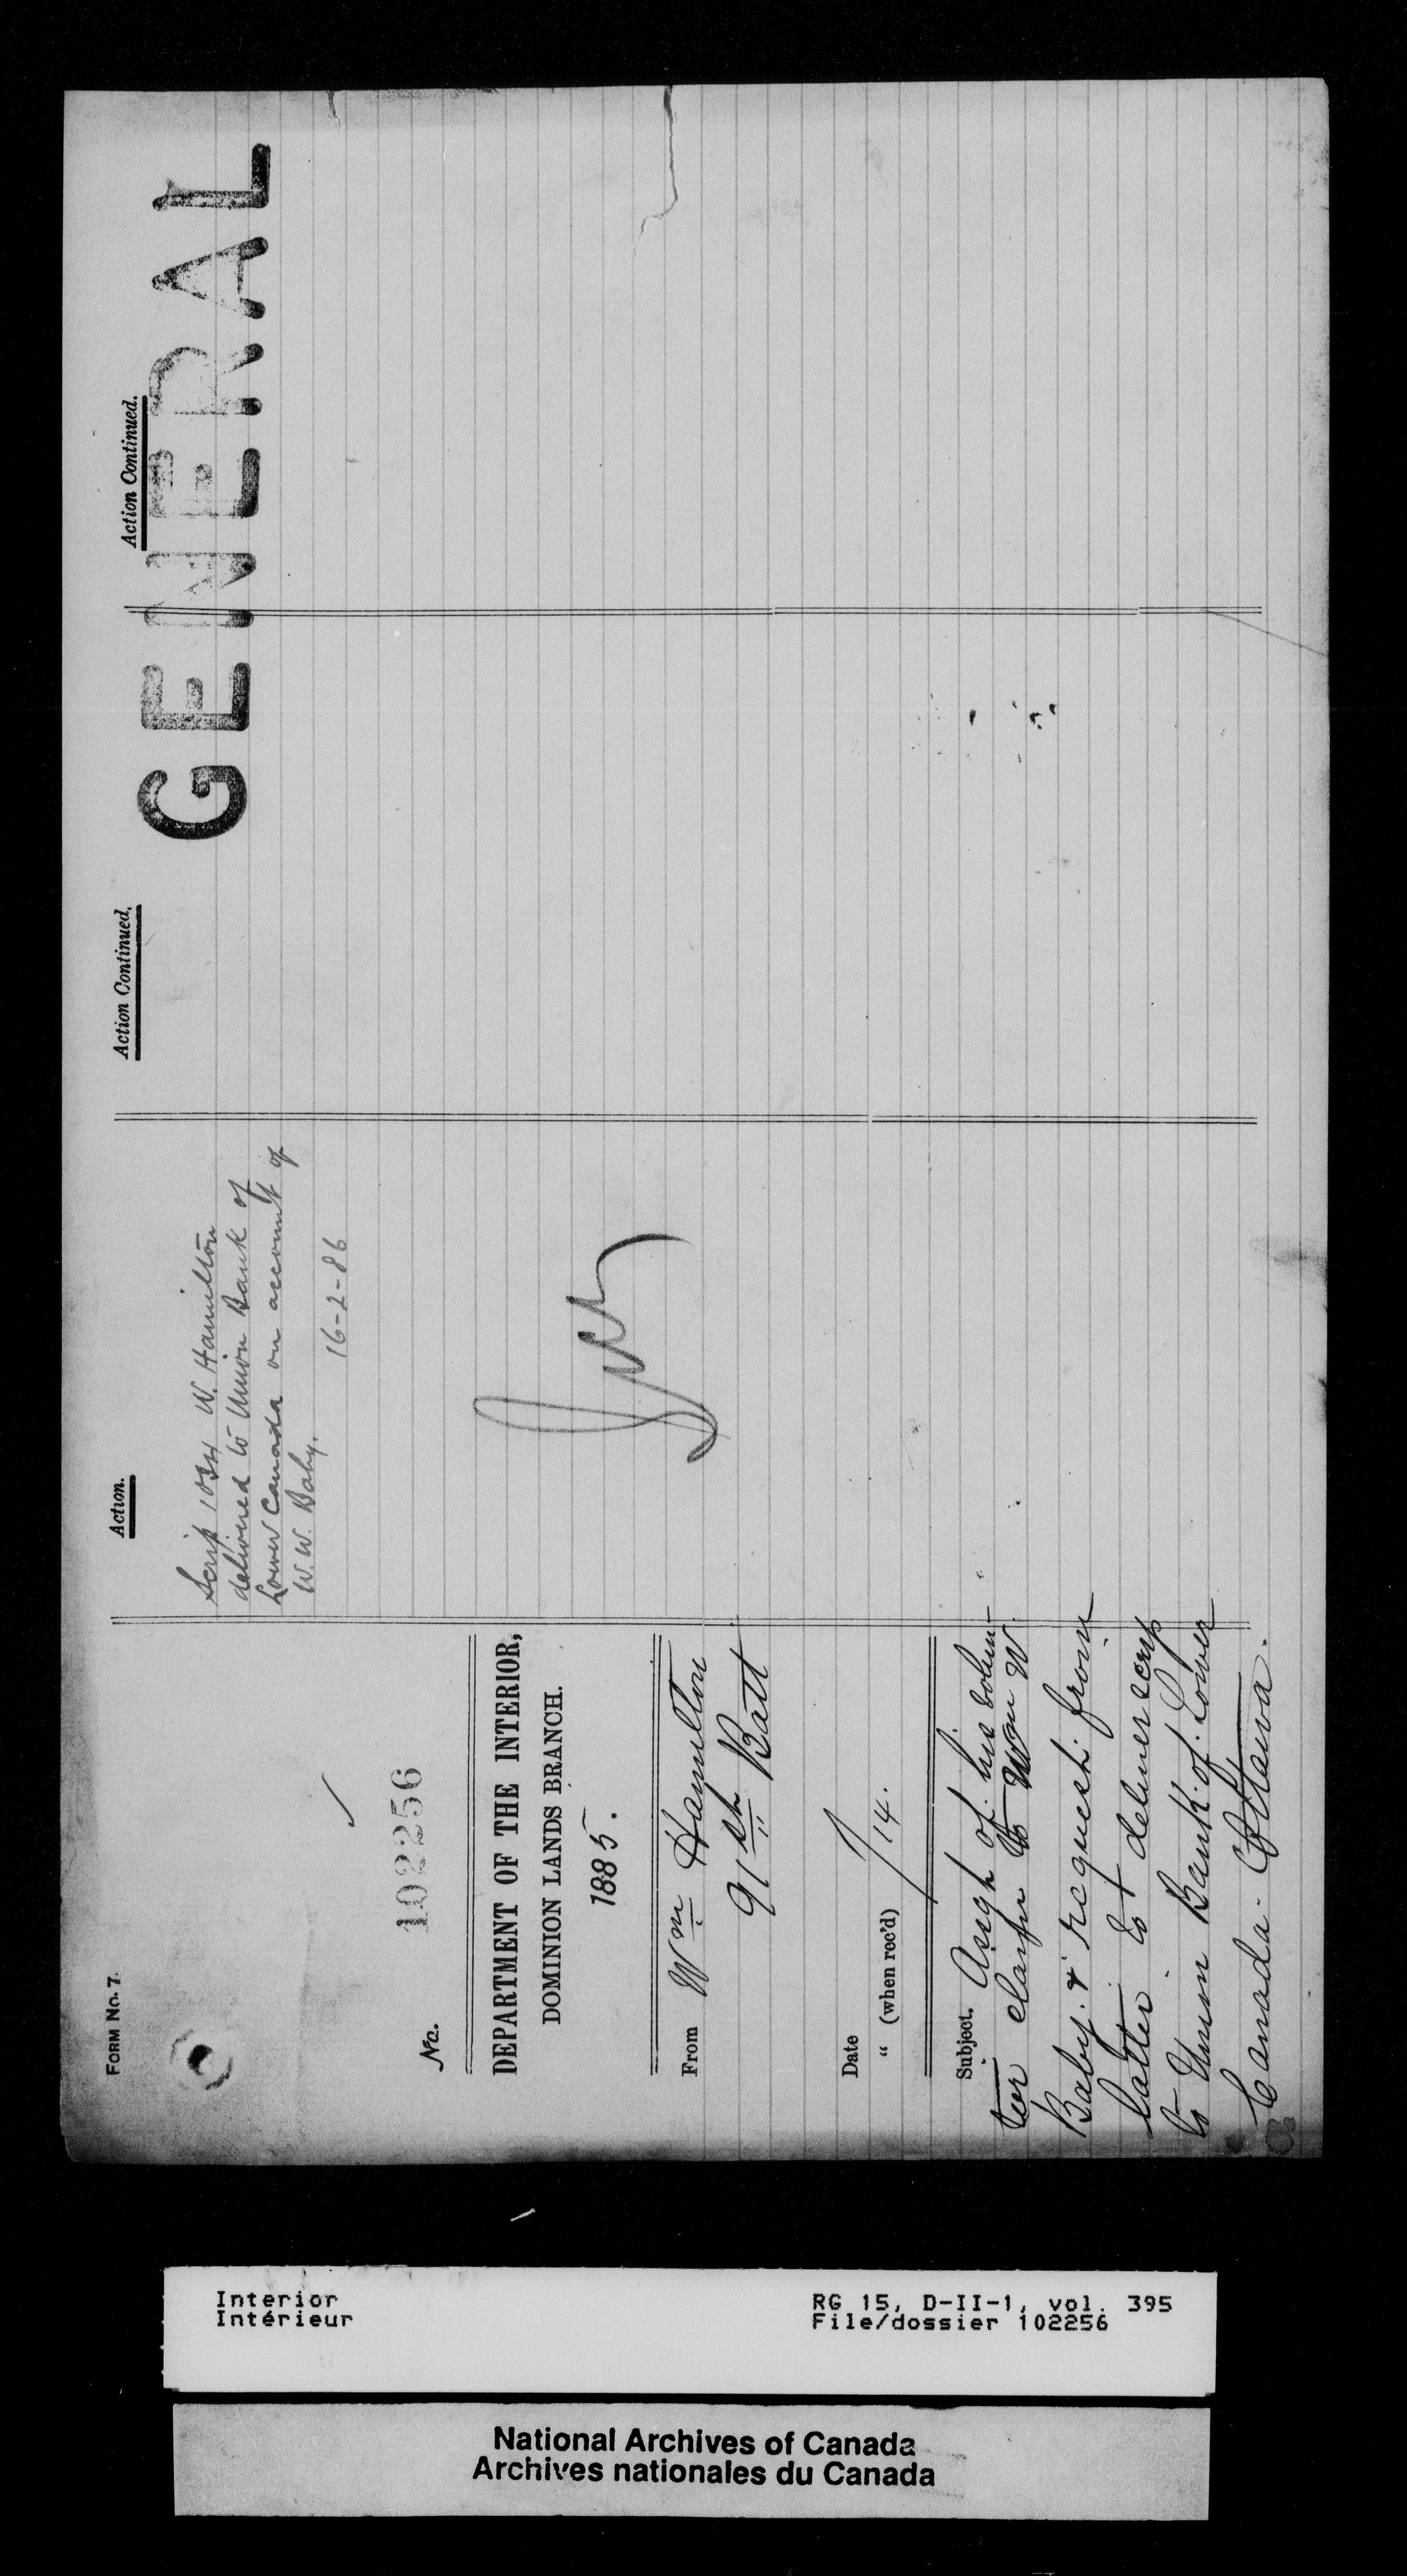 FORM No. 7.
No. 102256
DEPARTMENT OF THE INTERIOR,
DOMINION LANDS BRANCH.
1885.
From Wm Hamilton
91st Batt
Date
" (when rec'd) /14.
Subject. Assgt of his volun-
teer claim to Wm W.
Baby. & request from
latter to deliver scrip
to Union Bank of Lower
Canada. Ottawa.
Action.
Scrip 1034 W. Hamilton
delivered to Union Bank of
Lower Canada on account of
W. W. Baby.
16-2-86
Action Continued.
Action Continued.
GENERAL
Interior
Intérieur
RG 15, D-II-1, vol. 395
File/dossier 102256
National Archives of Canada
Archives nationales du Canada